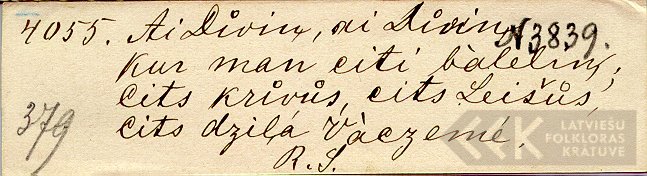 4055. Ai Dīviņ, ai Dīviņ, N 3839.
Kur man citi bàleliņ,
Cits krīvůs, cits Leišůs,
379 Cits dziļà Vàczemé.
R. S.
LATVIEŠU
FOLKLORAS
KRĀTUVE